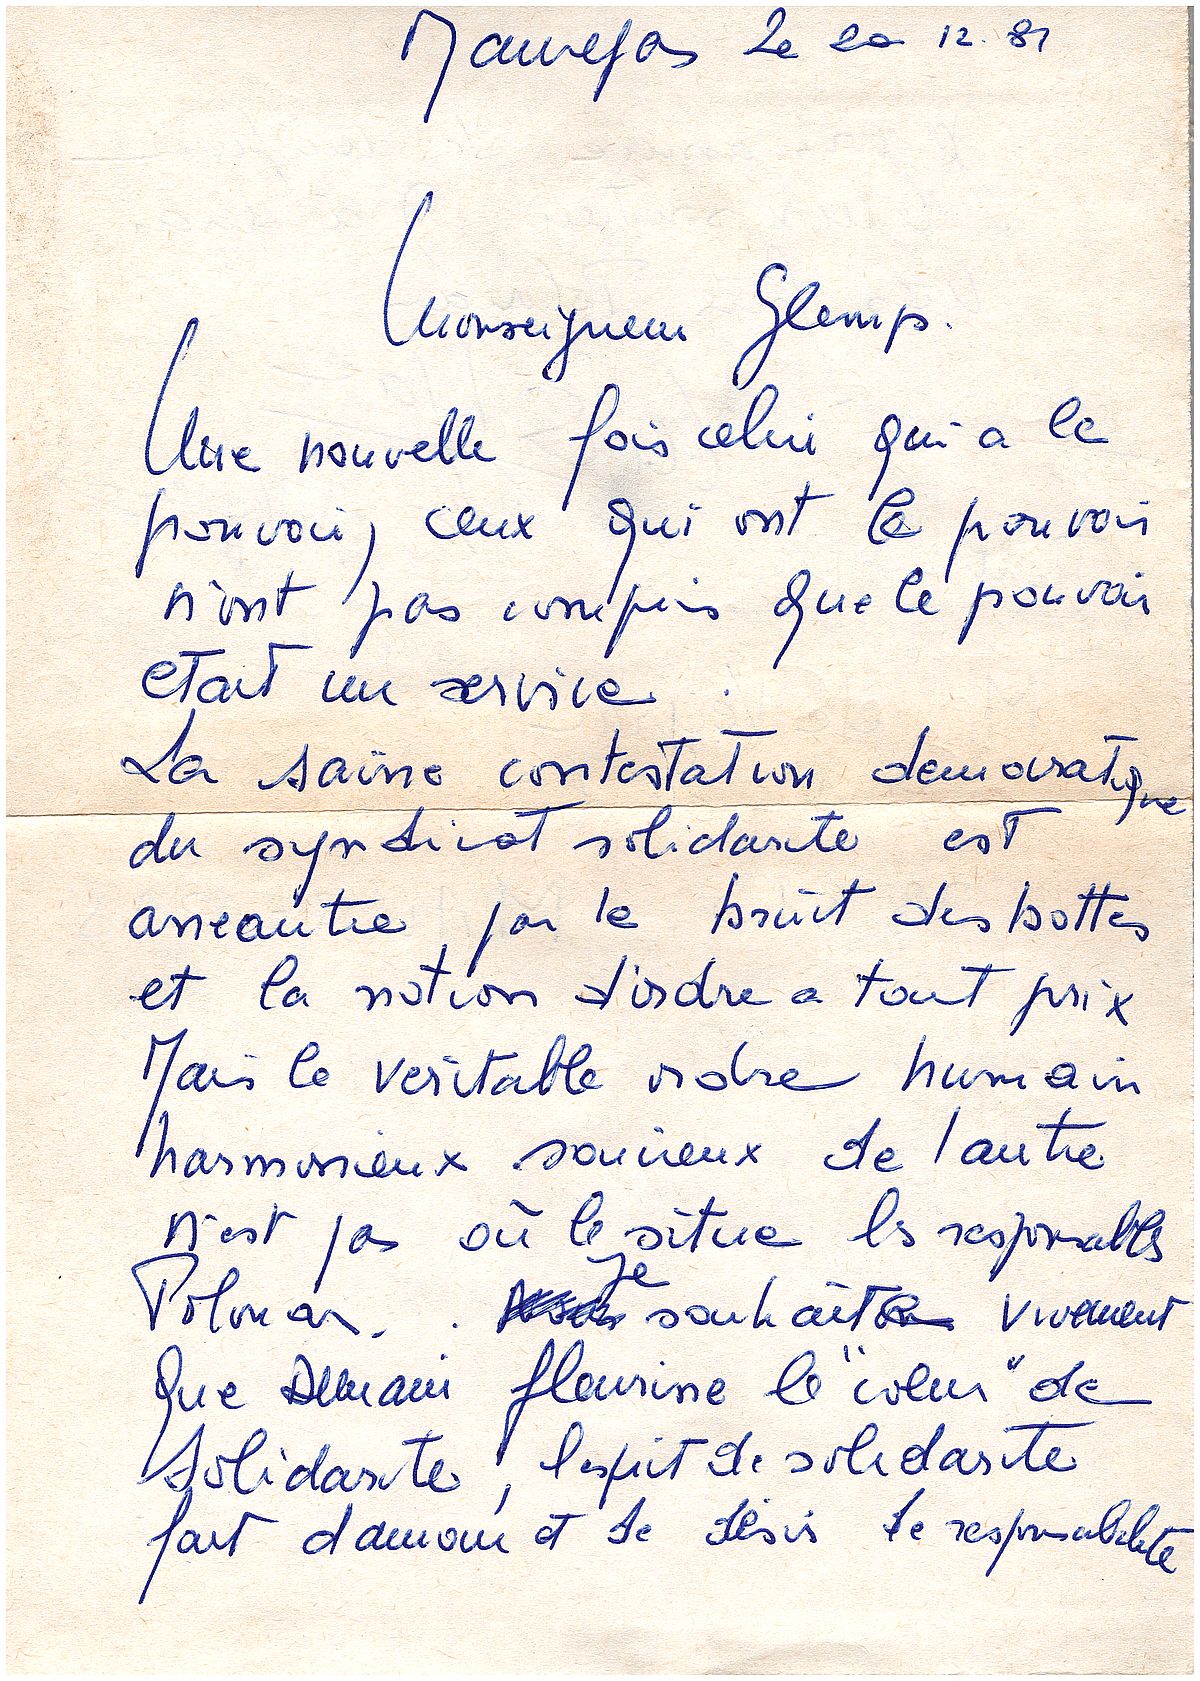 Maurepas le 20 12.81
Monseigneur Glemp.
Une nouvelle fois celui qui a le
pouvoir, ceux qui ont le pouvoir
n'ont pas compris que le pouvoir
etait un service.
La saine contestation democratique
du syndicat solidarite est
aneantie, par le bruit des bottes
et la notion d'ordre a tout prix
Mais le veritable ordre humain
harmonieux soucieux de l'autre
n'est pas où le situe les responsables
Polonais. Je souhaite vivement
que Demain fleurisse le "coeur" de
Solidarite, l'esprit de solidarite
fait d'amour et de désir de responsabilité